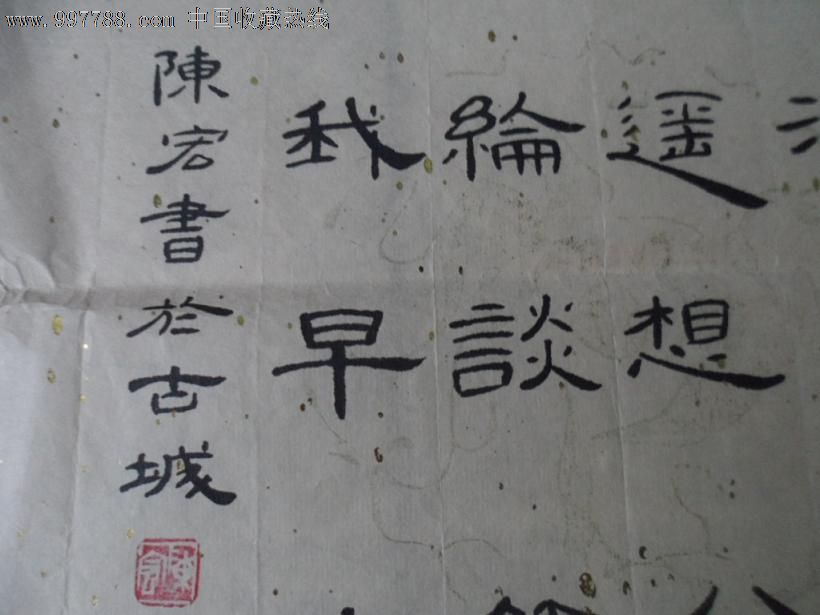 www.997788.com 中国收藏热线
遥想
綸談
我早
陳宏書於古城